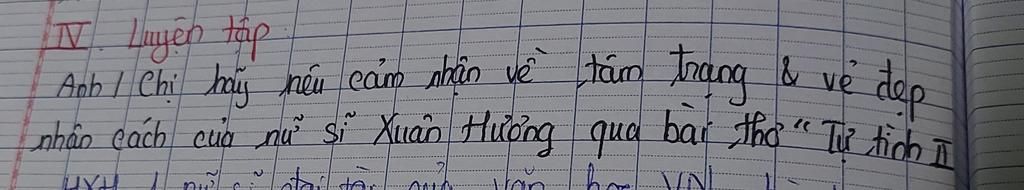 IV. Luyện tập
Anh / Chị hãy nêu cảm nhận về tâm trạng & vẻ đẹp
nhân cách của nữ sĩ Xuân Hương qua bài thơ "Tự tình II